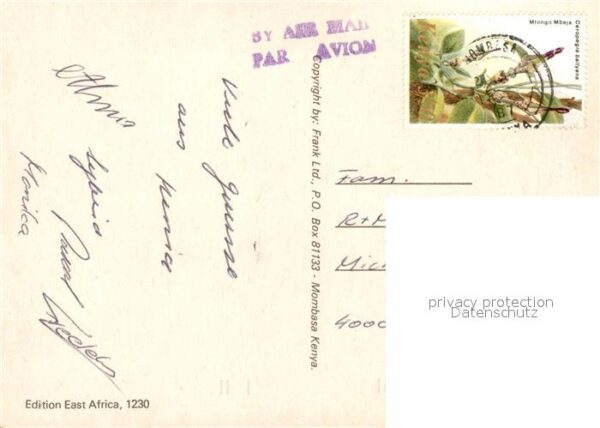 BY AIR MAIL
PAR AVION
Mtongo Mbeja
Ceropegia ballyana
Kenya
MOMBASA
Viele Grüsse
aus Kenia
Sylvia
Monica
Copyright by: Frank Ltd., P.O. Box 81133 - Mombasa Kenya.
Fam.
R+M
Mich
4000
privacy protection
Datenschutz
Edition East Africa, 1230